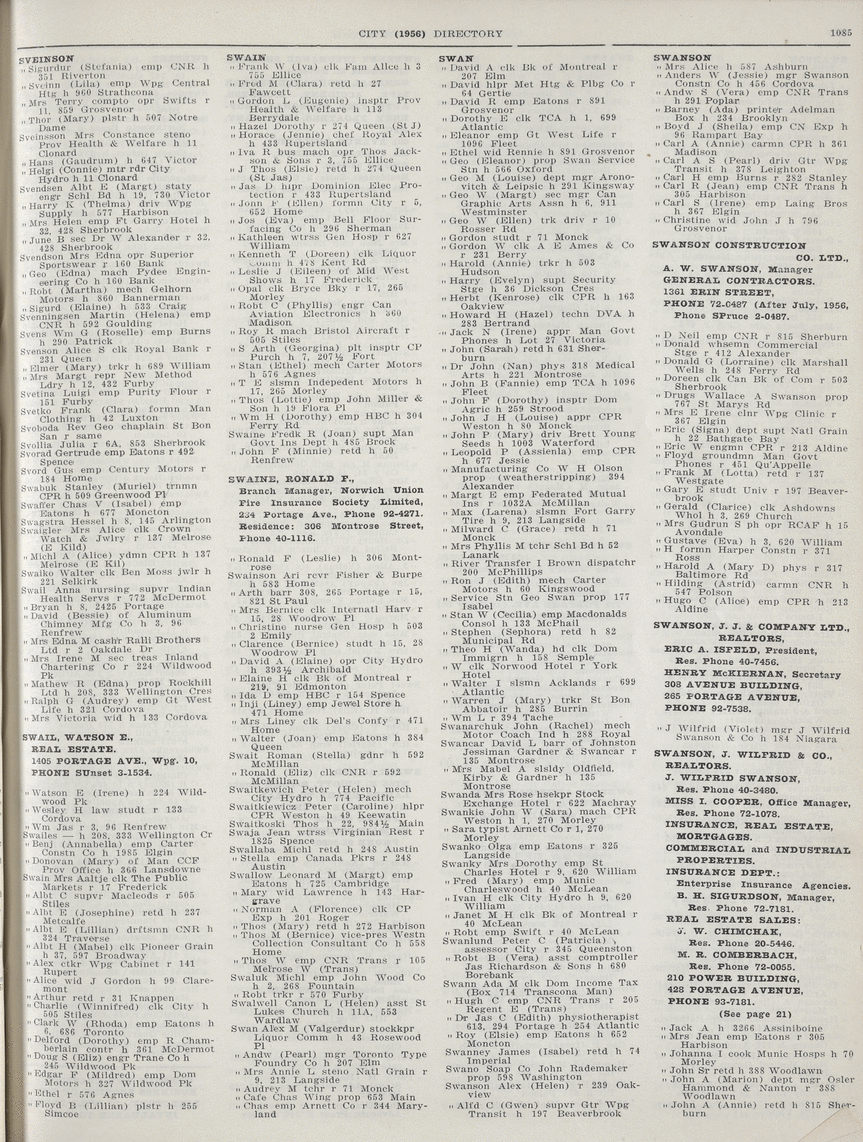 CITY (1956) DIRECTORY 1085
SVEINSON
„ Sigurdur (Stefania) emp CNR h
351 Riverton
„ Sveinn (Lila) emp Wpg Central
Htg h 960 Strathcona
„ Mrs Terry compto opr Swifts r
11, 859 Grosvenor
„ Thor (Mary) plstr h 507 Notre
Dame
Sveinsson Mrs Constance steno
Prov Health & Welfare h 11
Clonard
„ Hans (Gaudrum) h 647 Victor
„ Helgi (Connie) mtr rdr City
Hydro h 11 Clonard
Svendsen Albt E (Margt) staty
engr Schl Bd h 19, 730 Victor
„ Harry K (Thelma) driv Wpg
Supply h 577 Harbison
„ Mrs Helen emp Ft Garry Hotel h
32, 428 Sherbrook
„ June B sec Dr W Alexander r 32,
428 Sherbrook
Svendson Mrs Edna opr Superior
Sportswear r 160 Bank
„ Geo (Edna) mach Pydee Engin-
eering Co h 160 Bank
„ Robt (Martha) mech Gelhorn
Motors h 860 Bannerman
„ Sigurd (Elaine) h 533 Craig
Svenningsen Martin (Helena) emp
CNR h 592 Goulding
Svens Wm G (Roselle) emp Burns
h 290 Patrick
Svenson Alice S clk Royal Bank r
231 Queen
„ Elmer (Mary) trkr h 689 William
„ Mrs Margt repr New Method
Ldry h 12, 432 Furby
Svetina Luigi emp Purity Flour r
151 Furby
Svetko Frank (Clara) formn Man
Clothing h 42 Luxton
Svoboda Rev Geo chaplain St Bon
San r same
Svollia Julia r 6A, 853 Sherbrook
Svorad Gertrude emp Eatons r 492
Spence
Svord Gus emp Century Motors r
184 Home
Swabuk Stanley (Muriel) trnmn
CPR h 509 Greenwood Pl
Swaffer Chas V (Isabel) emp
Eatons h 677 Moncton
Swagstra Hessel h 8, 145 Arlington
Swaigler Mrs Alice clk Crown
Watch & Jwlry r 137 Melrose
(E Kild)
„ Michl A (Alice) ydmn CPR h 137
Melrose (E Kil)
Swaiko Walter clk Ben Moss jwlr h
221 Selkirk
Swail Anna nursing supvr Indian
Health Servs r 772 McDermot
„ Bryan h 8, 2425 Portage
„ David (Bessie) of Aluminum
Chimney Mfg Co h 3, 96
Renfrew
„ Mrs Edna M cashr Ralli Brothers
Ltd r 2 Oakdale Dr
„ Mrs Irene M sec treas Inland
Chartering Co r 224 Wildwood
Pk
„ Mathew R (Edna) prop Rockhill
Ltd h 208, 333 Wellington Cres
„ Ralph G (Audrey) emp Gt West
Life h 321 Cordova
„ Mrs Victoria wid h 133 Cordova
SWAIL, WATSON E.,
REAL ESTATE.
1405 PORTAGE AVE., Wpg. 10,
PHONE SUnset 3-1534.
„ Watson E (Irene) h 224 Wild-
wood Pk
„ Wesley H law studt r 133
Cordova
„ Wm Jas r 3, 96 Renfrew
Swailes — h 208, 333 Wellington Cr
„ Benj (Annabella) emp Carter
Constn Co h 1985 Elgin
„ Donovan (Mary) of Man CCF
Prov Office h 366 Lansdowne
Swain Mrs Aaltje clk The Public
Markets r 17 Frederick
„ Albt C supvr Macleods r 505
Stiles
„ Albt E (Josephine) retd h 237
Metcalfe
„ Albt E (Lillian) drftsmn CNR h
324 Traverse
„ Albt H (Mabel) clk Pioneer Grain
h 37, 597 Broadway
„ Alex ctkr Wpg Cabinet r 141
Rupert
„ Alice wid J Gordon h 99 Clare-
mont
„ Arthur retd r 31 Knappen
„ Charlie (Winnifred) clk City h
505 Stiles
„ Clark W (Rhoda) emp Eatons h
6, 686 Toronto
„ Delford (Dorothy) emp R Cham-
berlain contr h 361 McDermot
„ Doug S (Eliz) engr Trane Co h
245 Wildwood Pk
„ Edgar F (Mildred) emp Dom
Motors h 327 Wildwood Pk
„ Ethel r 576 Agnes
„ Floyd B (Lillian) plstr h 255
Simcoe
SWAIN
„ Frank W (Iva) clk Fam Allce h 3
755 Ellice
„ Fred M (Clara) retd h 27
Fawcett
„ Gordon L (Eugenie) insptr Prov
Health & Welfare h 113
Berrydale
„ Hazel Dorothy r 274 Queen (St J)
„ Horace (Jennie) chef Royal Alex
h 433 Rupertsland
„ Iva R bus mach opr Thos Jack-
son & Sons r 3, 755 Ellice
„ J Thos (Elsie) retd h 274 Queen
(St Jas)
„ Jas D hlpr Dominion Elec Pro-
tection r 433 Rupertsland
„ John F (Ellen) formn City r 5,
652 Home
„ Jos (Eva) emp Bell Floor Sur-
facing Co h 296 Sherman
„ Kathleen wtrss Gen Hosp r 627
William
„ Kenneth T (Doreen) clk Liquor
Comm h 478 Kent Rd
„ Leslie J (Eileen) of Mid West
Shows h 17 Frederick
„ Opal clk Bryce Bky r 17, 265
Morley
„ Robt C (Phyllis) engr Can
Aviation Electronics h 360
Madison
„ Roy R mach Bristol Aircraft r
505 Stiles
„ S Arth (Georgina) plt insptr CP
Purch h 7, 207½ Fort
„ Stan (Ethel) mech Carter Motors
h 576 Agnes
„ T E slsmn Indepedent Motors h
17, 265 Morley
„ Thos (Lottie) emp John Miller &
Son h 19 Flora Pl
„ Wm H (Dorothy) emp HBC h 304
Ferry Rd
Swaine Fredk R (Joan) supt Man
Govt Ins Dept h 485 Brock
„ John F (Minnie) retd h 50
Renfrew
SWAINE, RONALD F.,
Branch Manager, Norwich Union
Fire Insurance Society Limited,
234 Portage Ave., Phone 92-4271.
Residence: 306 Montrose Street,
Phone 40-1116.
„ Ronald F (Leslie) h 306 Mont-
rose
Swainson Ari rcvr Fisher & Burpe
h 583 Home
„ Arth barr 308, 265 Portage r 15,
821 St Paul
„ Mrs Bernice clk Internatl Harv r
15, 28 Woodrow Pl
„ Christine nurse Gen Hosp h 503
2 Emily
„ Clarence (Bernice) studt h 15, 28
Woodrow Pl
„ David A (Elaine) opr City Hydro
h 393½ Archibald
„ Elaine H clk Bk of Montreal r
219, 91 Edmonton
„ Ida D emp HBC r 154 Spence
„ Inji (Liney) emp Jewel Store h
471 Home
„ Mrs Liney clk Del's Confy r 471
Home
„ Walter (Joan) emp Eatons h 384
Queen
Swait Roman (Stella) gdnr h 592
McMillan
„ Ronald (Eliz) clk CNR r 592
McMillan
Swaitkewich Peter (Helen) mech
City Hydro h 774 Pacific
Swaitkiewicz Peter (Caroline) hlpr
CPR Weston h 49 Keewatin
Swaitkoski Thos h 22, 984½ Main
Swaja Jean wtrss Virginian Rest r
1825 Spence
Swallaba Michl retd h 248 Austin
„ Stella emp Canada Pkrs r 248
Austin
Swallow Leonard M (Margt) emp
Eatons h 725 Cambridge
„ Mary wid Lawrence h 143 Har-
grave
„ Norman A (Florence) clk CP
Exp h 201 Roger
„ Thos (Mary) retd h 272 Harbison
„ Thos M (Bernice) vice-pres Westn
Collection Consultant Co h 558
Home
„ Thos W emp CNR Trans r 105
Melrose W (Trans)
Swaluk Michl emp John Wood Co
h 2, 268 Fountain
„ Robt trkr r 570 Furby
Swalwell Canon L (Helen) asst St
Lukes Church h 11A, 553
Wardlaw
Swan Alex M (Valgerdur) stockkpr
Liquor Comm h 43 Rosewood
Pl
„ Andw (Pearl) mgr Toronto Type
Foundry Co h 207 Elm
„ Mrs Annie L steno Natl Grain r
9, 213 Langside
„ Audrey M tchr r 71 Monck
„ Cafe Chas Wing prop 653 Main
„ Chas emp Arnett Co r 344 Mary-
land
SWAN
„ David A clk Bk of Montreal r
207 Elm
„ David hlpr Met Htg & Plbg Co r
64 Gertie
„ David R emp Eatons r 891
Grosvenor
„ Dorothy E clk TCA h 1, 699
Atlantic
„ Eleanor emp Gt West Life r
1096 Fleet
„ Ethel wid Rennie h 891 Grosvenor
„ Geo (Eleanor) prop Swan Service
Stn h 566 Oxford
„ Geo M (Louise) dept mgr Arono-
vitch & Leipsic h 291 Kingsway
„ Geo W (Margt) sec mgr Can
Graphic Arts Assn h 6, 911
Westminster
„ Geo W (Ellen) trk driv r 10
Rosser Rd
„ Gordon studt r 71 Monck
„ Gordon W clk A E Ames & Co
r 231 Berry
„ Harold (Annie) trkr h 503
Hudson
„ Harry (Evelyn) supt Security
Stge h 36 Dickson Cres
„ Herbt (Kenrose) clk CPR h 163
Oakview
„ Howard H (Hazel) techn DVA h
283 Bertrand
„ Jack N (Irene) appr Man Govt
Phones h Lot 27 Victoria
„ John (Sarah) retd h 631 Sher-
burn
„ Dr John (Nan) phys 318 Medical
Arts h 221 Montrose
„ John B (Fannie) emp TCA h 1096
Fleet
„ John F (Dorothy) insptr Dom
Agric h 259 Strood
„ John J H (Louise) appr CPR
Weston h 80 Monck
„ John P (Mary) driv Brett Young
Seeds h 1003 Waterford
„ Leopold P (Assienla) emp CPR
h 677 Jessie
„ Manufacturing Co W H Olson
prop (weatherstripping) 394
Alexander
„ Margt E emp Federated Mutual
Ins r 1032A McMillan
„ Max (Larena) slsmn Fort Garry
Tire h 9, 213 Langside
„ Milward C (Grace) retd h 71
Monck
„ Mrs Phyllis M tchr Schl Bd h 52
Lanark
„ River Transfer I Brown dispatchr
200 McPhillips
„ Ron J (Edith) mech Carter
Motors h 60 Kingswood
„ Service Stn Geo Swan prop 177
Isabel
„ Stan W (Cecilia) emp Macdonalds
Consol h 133 McPhail
„ Stephen (Sephora) retd h 82
Municipal Rd
„ Theo H (Wanda) hd clk Dom
Immigrn h 158 Semple
„ W clk Norwood Hotel r York
Hotel
„ Walter I slsmn Acklands r 699
Atlantic
„ Warren J (Mary) trkr St Bon
Abbatoir h 285 Burrin
„ Wm L r 394 Tache
Swanarchuk John (Rachel) mech
Motor Coach Ind h 288 Royal
Swancar David L barr of Johnston
Jessiman Gardner & Swancar r
135 Montrose
„ Mrs Mabel A slsldy Oldfield,
Kirby & Gardner h 135
Montrose
Swanda Mrs Rose hsekpr Stock
Exchange Hotel r 622 Machray
Swankie John W (Sara) mach CPR
Weston h 1, 270 Morley
„ Sara typist Arnett Co r 1, 270
Morley
Swanko Olga emp Eatons r 325
Langside
Swanky Mrs Dorothy emp St
Charles Hotel r 9, 620 William
„ Fred (Mary) emp Munic
Charleswood h 40 McLean
„ Ivan H clk City Hydro h 9, 620
William
„ Janet M H clk Bk of Montreal r
40 McLean
„ Robt emp Swift r 40 McLean
Swanlund Peter C (Patricia)
assessor City r 345 Queenston
„ Robt B (Vera) asst comptroller
Jas Richardson & Sons h 680
Borebank
Swann Ada M clk Dom Income Tax
(Box 714 Transcona Man)
„ Hugh C emp CNR Trans r 205
Regent E (Trans)
„ Dr Jas C (Edith) physiotherapist
613, 294 Portage h 254 Atlantic
„ Roy (Elsie) emp Eatons h 652
Moncton
Swanney James (Isabel) retd h 74
Imperial
Swano Soap Co John Rademaker
prop 598 Washington
Swanson Alex (Helen) r 239 Oak-
view
„ Alf'd C (Gwen) supvr Gtr Wpg
Transit h 197 Beaverbrook
SWANSON
„ Mrs Alice h 587 Ashburn
„ Anders W (Jessie) mgr Swanson
Constn Co h 456 Cordova
„ Andw S (Vera) emp CNR Trans
h 291 Poplar
„ Barney (Ada) printer Adelman
Box h 234 Brooklyn
„ Boyd J (Sheila) emp CN Exp h
96 Rampart Bay
„ Carl A (Annie) carmn CPR h 361
Madison
„ Carl A S (Pearl) driv Gtr Wpg
Transit h 378 Leighton
„ Carl H emp Burns r 282 Stanley
„ Carl R (Jean) emp CNR Trans h
305 Harbison
„ Carl S (Irene) emp Laing Bros
h 367 Elgin
„ Christine wid John J h 796
Grosvenor
SWANSON CONSTRUCTION
CO. LTD.,
A. W. SWANSON, Manager
GENERAL CONTRACTORS.
1361 ERIN STREET,
PHONE 72-0487 (After July, 1956,
Phone SPruce 2-0487.
„ D Neil emp CNR r 815 Sherburn
„ Donald whsemn Commercial
Stge r 412 Alexander
„ Donald G (Lorraine) clk Marshall
Wells h 248 Ferry Rd
„ Doreen clk Can Bk of Com r 503
Sherbrook
„ Drugs Wallace A Swanson prop
767 St Marys Rd
„ Mrs E Irene clnr Wpg Clinic r
367 Elgin
„ Eric (Signa) dept supt Natl Grain
h 22 Bathgate Bay
„ Eric W engmn CPR r 213 Aldine
„ Floyd groundmn Man Govt
Phones r 451 Qu'Appelle
„ Frank M (Lotta) retd r 137
Westgate
„ Gary E studt Univ r 197 Beaver-
brook
„ Gerald (Clarice) clk Ashdowns
Whol h 3, 269 Church
„ Mrs Gudrun S ph opr RCAF h 15
Avondale
„ Gustave (Eva) h 3, 620 William
„ H formn Harper Constn r 371
Ross
„ Harold A (Mary D) phys r 317
Baltimore Rd
„ Hilding (Astrid) carmn CNR h
547 Polson
„ Hugo C (Alice) emp CPR h 213
Aldine
SWANSON, J. J. & COMPANY LTD.,
REALTORS,
ERIC A. ISFELD, President,
Res. Phone 40-7456.
HENRY McKIERNAN, Secretary
308 AVENUE BUILDING,
265 PORTAGE AVENUE,
PHONE 92-7538.
„ J Wilfrid (Violet) mgr J Wilfrid
Swanson & Co h 184 Niagara
SWANSON, J. WILFRID & CO.,
REALTORS.
J. WILFRID SWANSON,
Res. Phone 40-3480.
MISS I. COOPER, Office Manager,
Res. Phone 72-1078.
INSURANCE, REAL ESTATE,
MORTGAGES.
COMMERCIAL and INDUSTRIAL
PROPERTIES.
INSURANCE DEPT.:
Enterprise Insurance Agencies.
B. H. SIGURDSON, Manager,
Res. Phone 72-7181.
REAL ESTATE SALES:
J. W. CHIMCHAK,
Res. Phone 20-5446.
M. R. COMBERBACH,
Res. Phone 72-0055.
210 POWER BUILDING,
428 PORTAGE AVENUE,
PHONE 93-7181.
(See page 21)
„ Jack A h 3266 Assiniboine
„ Mrs Jean emp Eatons r 305
Harbison
„ Johanna I cook Munic Hosps h 70
Morley
„ John Sr retd h 388 Woodlawn
„ John A (Marion) dept mgr Osler
Hammond & Nanton r 388
Woodlawn
„ John A (Annie) retd h 815 Sher-
burn